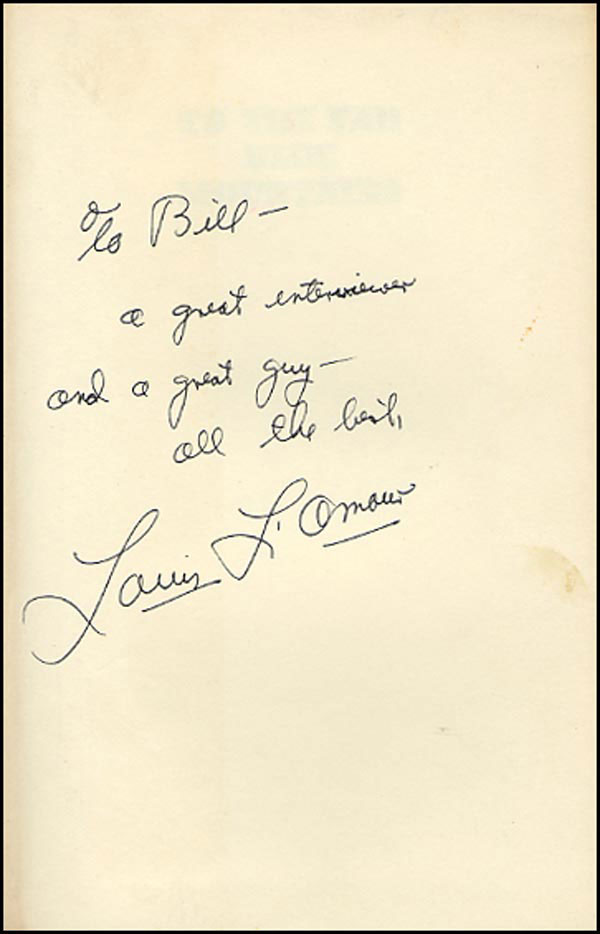 To Bill —
a great interviewer
and a great guy —
all the best,
Louis L'Amour